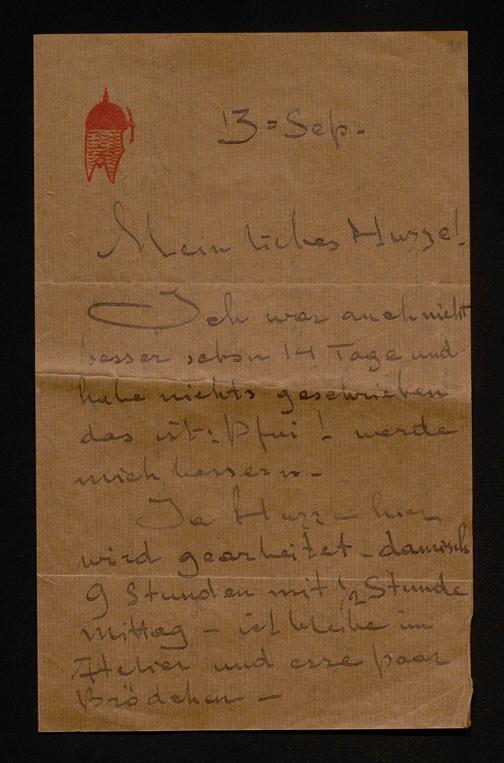 13 = Sep.
Mein liebes Huzze!
Ich war auch nicht
besser schon 14 Tage und
habe nichts geschrieben
das ist: Pfui! werde
mich bessern -
Ja Huzz - hier
wird gearbeitet - damisch
9 Stunden mit 1/2 Stunde
Mittag - ich bleibe im
Atelier und esse paar
Brödchen -